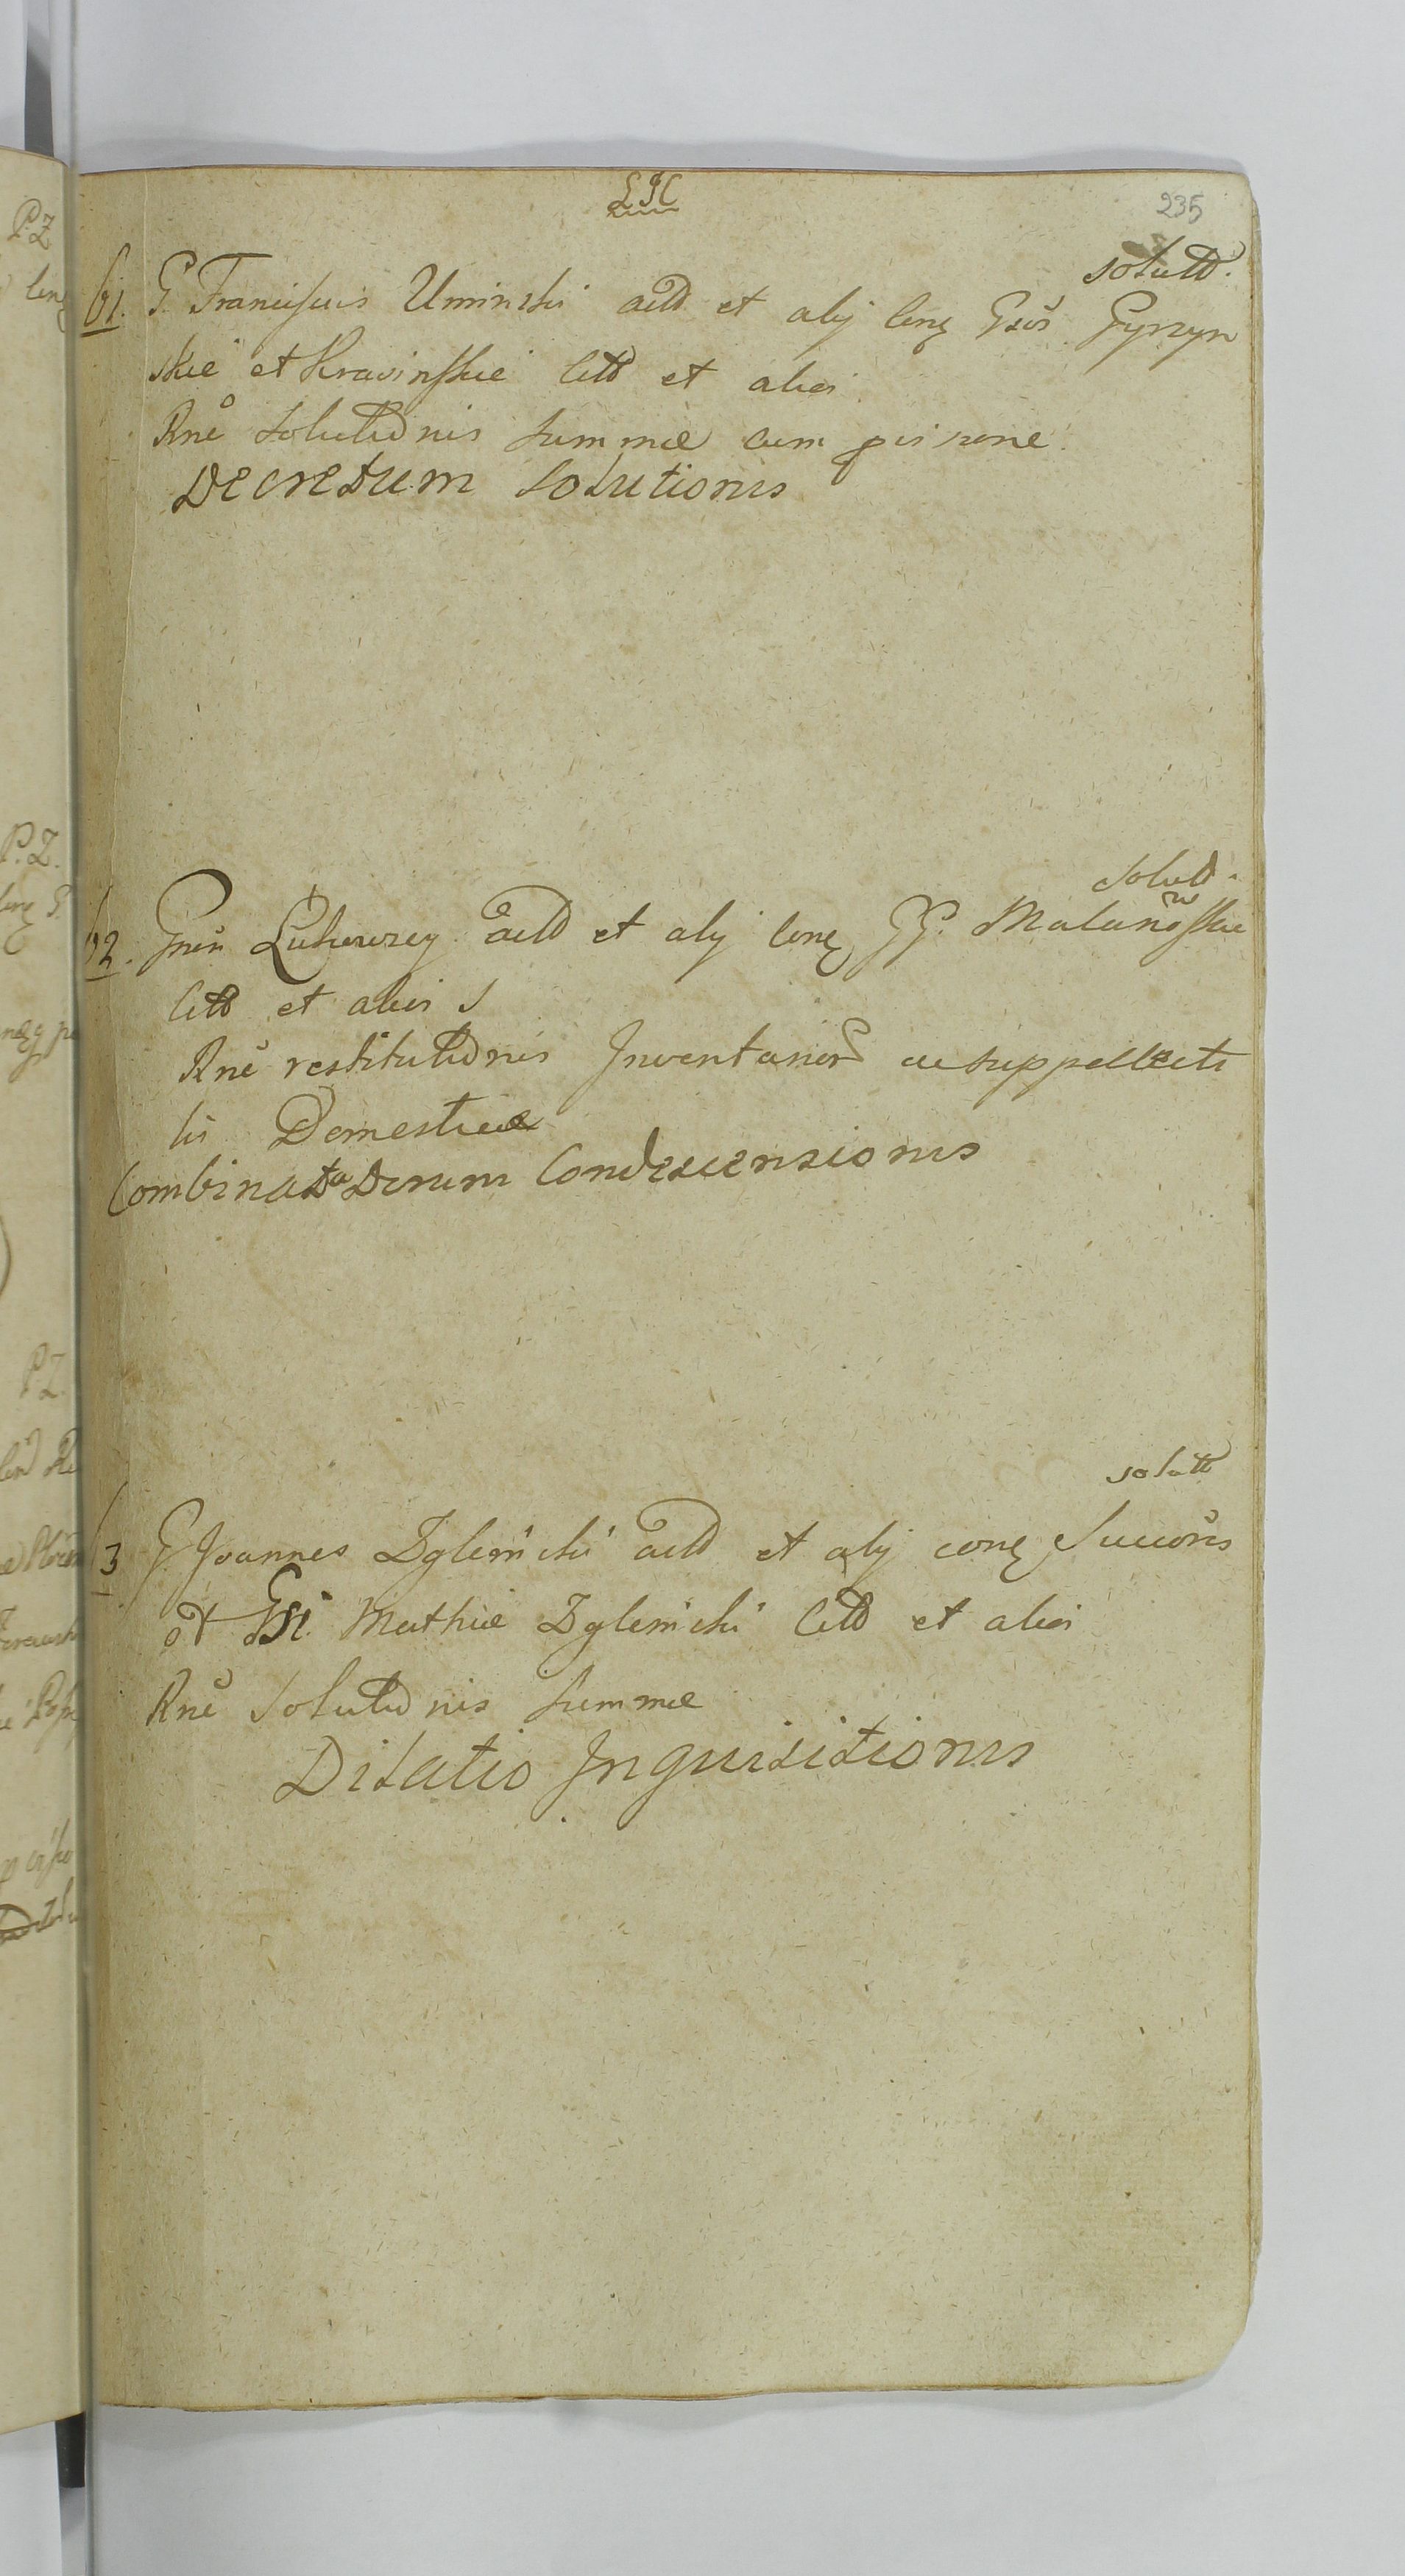 235
solutt.
61. G. Franciscus Uminski actt et alij conq Gsos Gyzyn
skie et Krasinskie Citt et alios
Rne solutionis summae cum poisione.
Decretum Solutionis
Solutt.
62. Gnen actt et alij conq GG. Malanowskie
Citt et alios
Rne restitutionis Inventarior ac suppellecti
lis Domesticae
Combinata Derum Condescensionis
solutt
63 G. Joannes Zglenicki actt et alij conq Succoris
et Gsi. Mathiae Zglenicki Citt et alios
Rne Solutionis Summae
Dilatio Inquisitionis